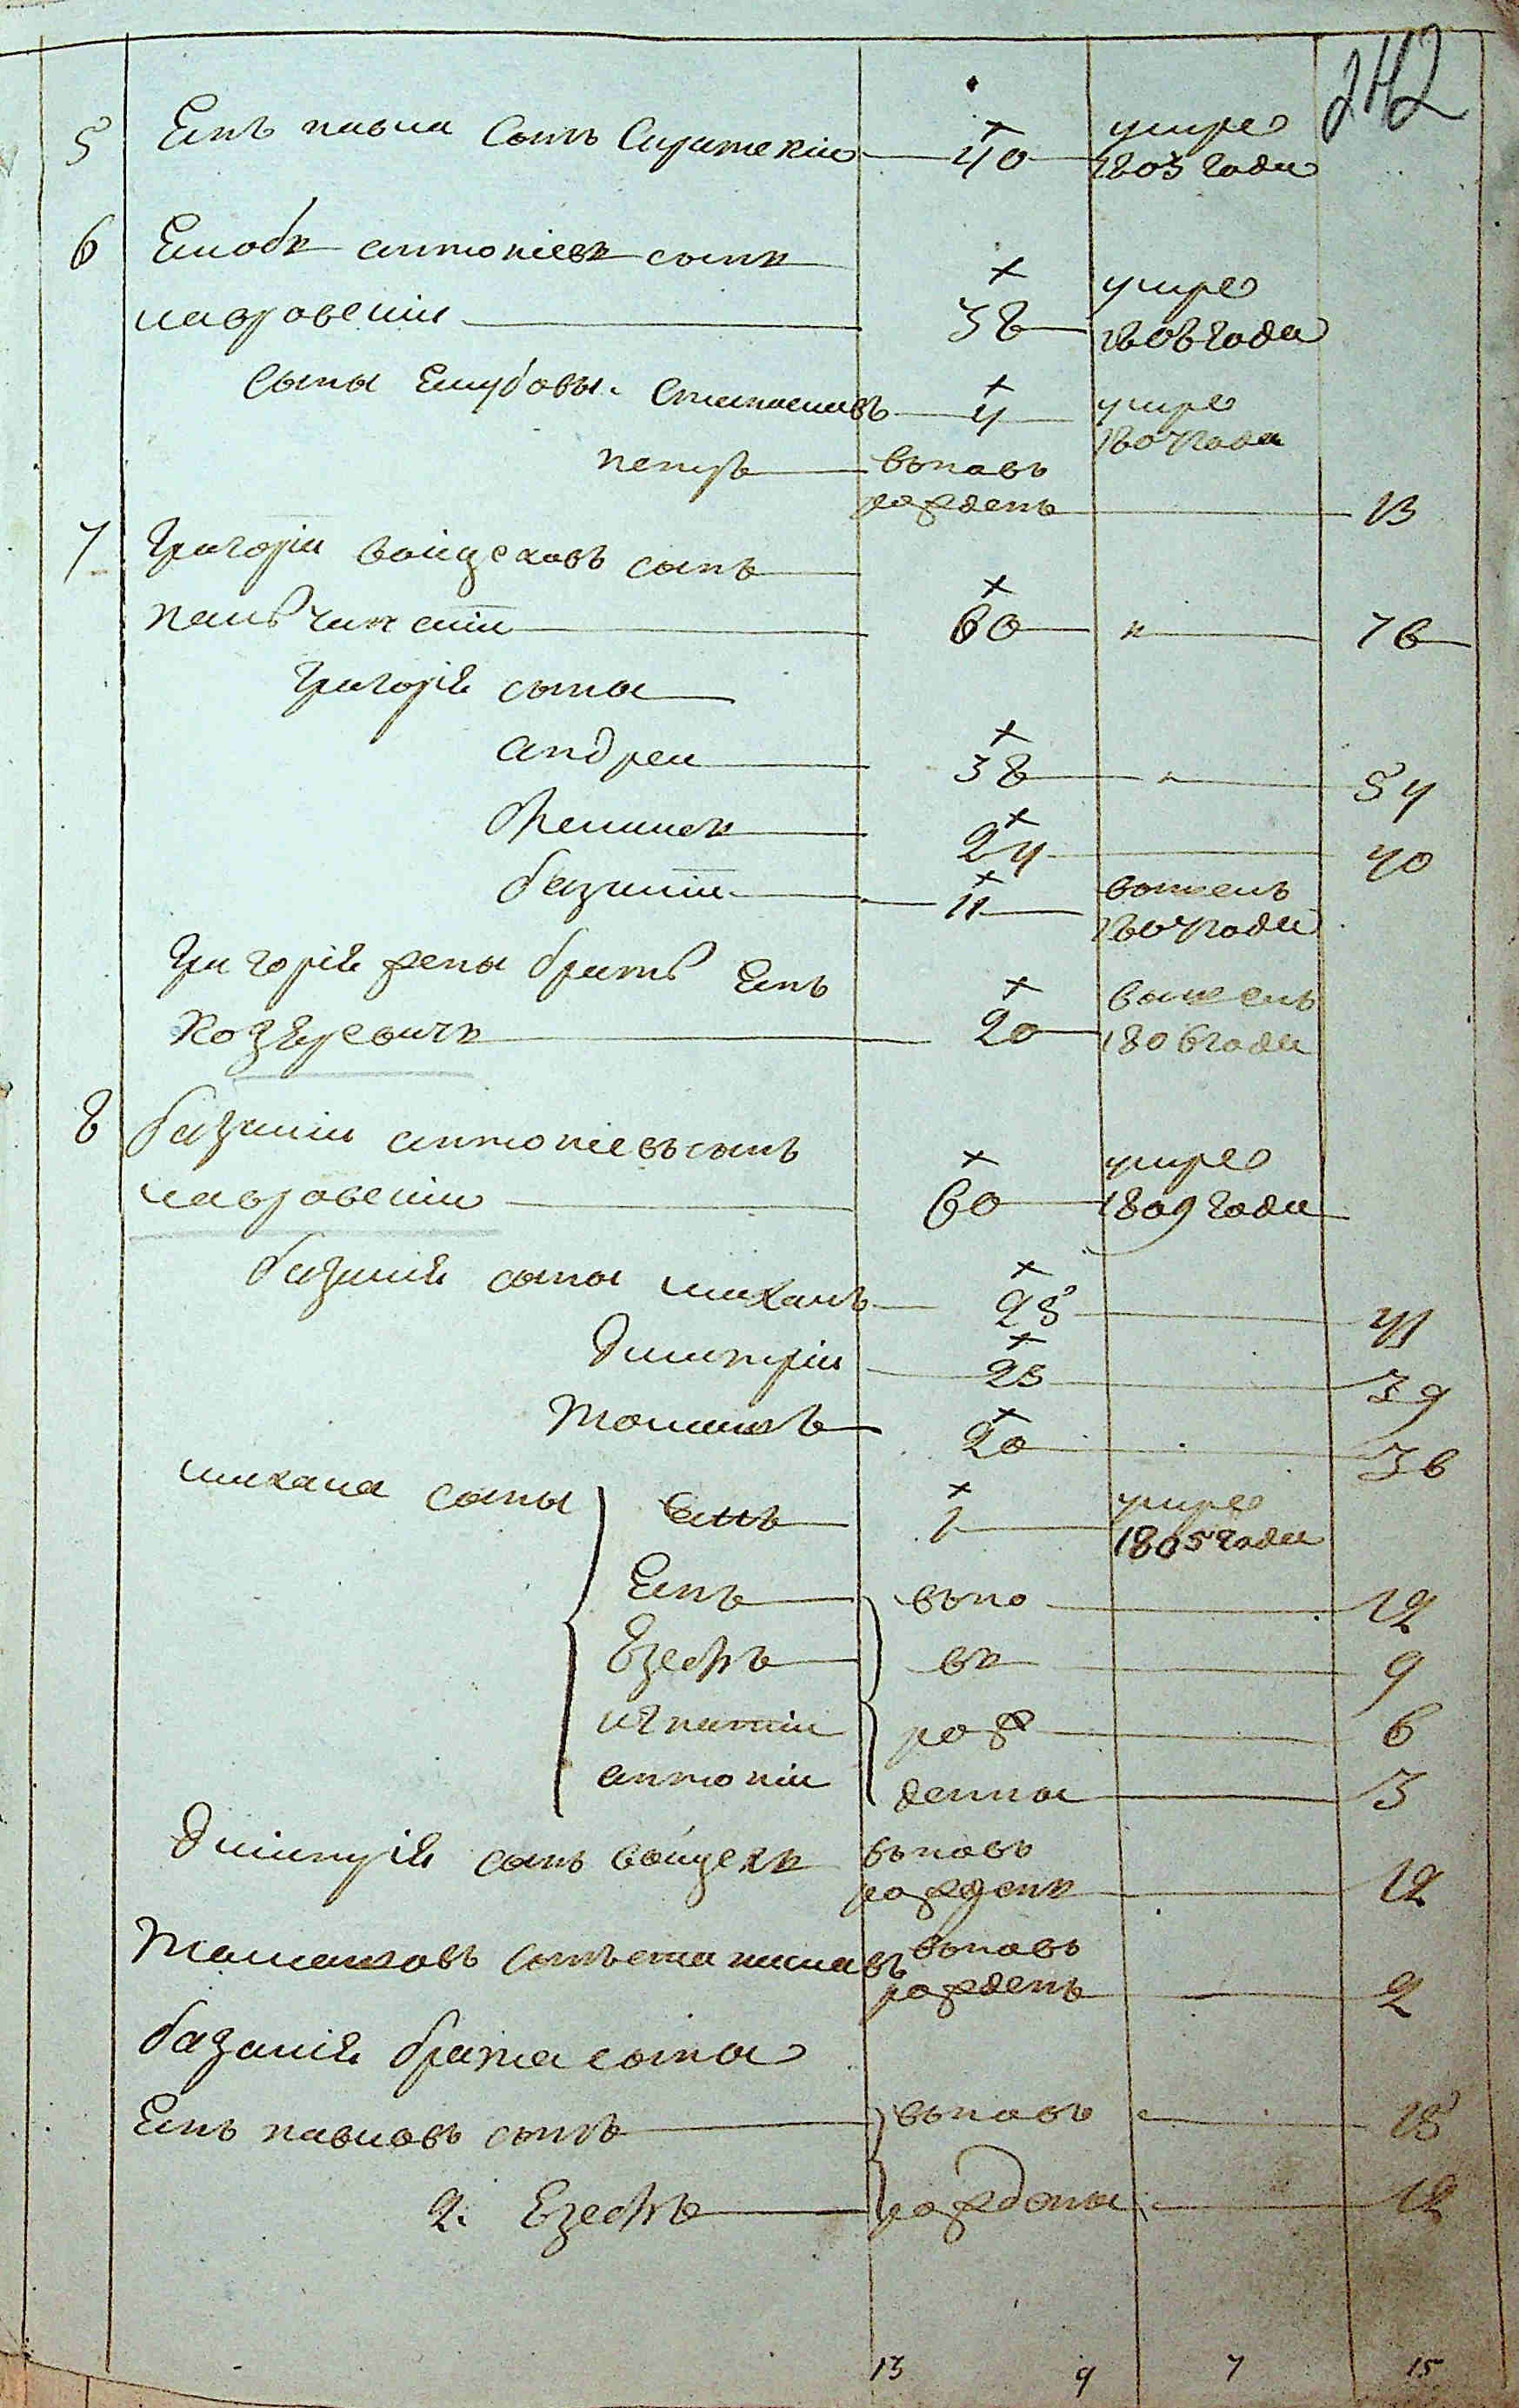 242
5 Янъ павла Сынъ — 40 — умре
1803 года
6 Якобъ антоніевъ сынъ
лавровскіи — 38 — умре
1808 года
Сыны Якубовы Станиславъ — 4 — умре
1804 года
петръ — вновь
рожденъ — 13
7 Григоріи войцеховъ сынъ
— 60 — „ — 76
Григорія сыны
андреи — 38 — „ — 54
Феликсъ — 24 — 40
базиліи — 11 — вышелъ
1804 года
Григорія жены братъ Янъ
Козѣревичъ — 20 — вышелъ
1806 года
8 базиліи антоніевъ сынъ
лавровскіи — 60 — умре
1809 года
базилія сыны михалъ — 25 — 41
Димитріи — 23 — 39
Томашъ — 20 — 36
михала сыны Янъ — 1 — умре
1805 года
Янъ — вно — 12
Езефъ — въ — 9
игнатіи рож — 6
антоніи денны — 3
Димитрія сынъ войцехъ вновь
рожденъ — 12
Томашовъ сынъ станиславъ вновь
рожденъ — 2
базилія брата сыны
Янъ павловъ сынъ — вновь — 18
2. Езефъ — рождены — 12
13 9 7 15